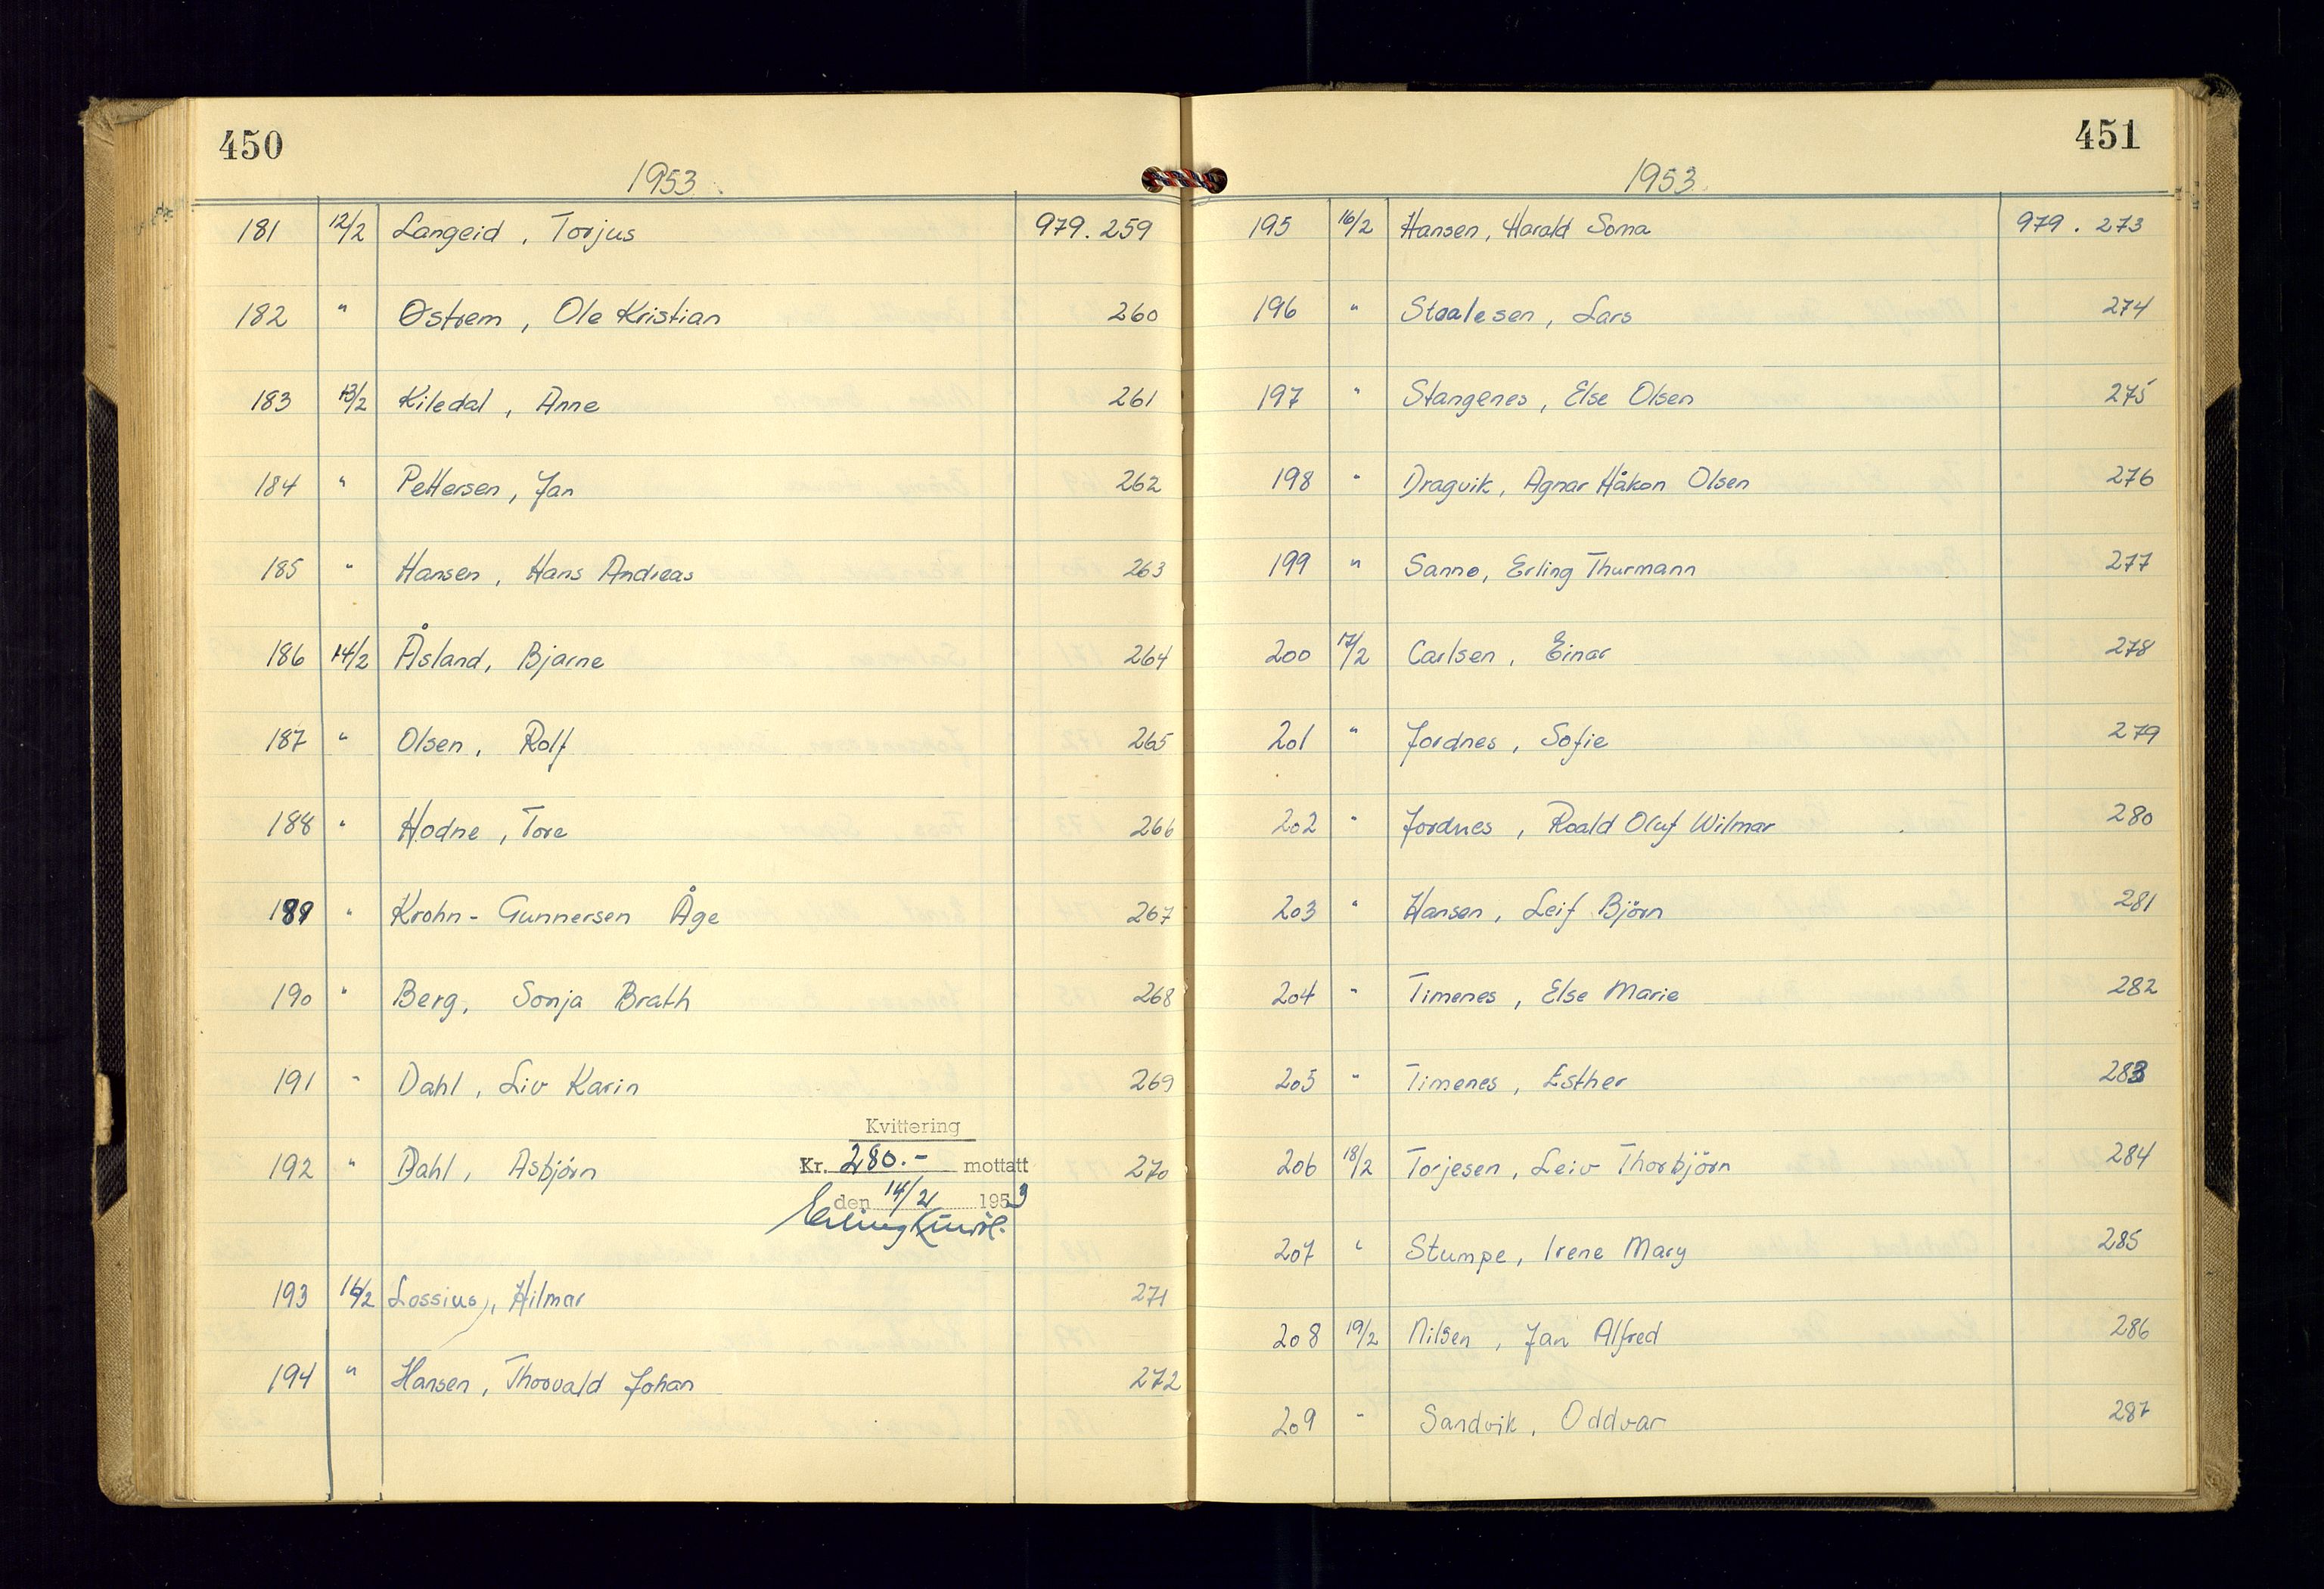 450
1953
181 12/2 Langeid, Torjus 979.259
182 " Østrem, Ole Kristian 260
183 13/2 Kiledal, Anne 261
184 " Pettersen, Jan 262
185 " Hansen, Hans Andreas 263
186 14/2 Åsland, Bjarne 264
187 " Olsen, Rolf 265
188 " Hodne, Tore 266
189 " Krohn-Gunnersen Åge 267
190 " Berg, Sonja Brath 268
191 " Dahl, Liv Karin 269
Kvittering
192 " Dahl, Asbjörn Kr. 280.- mottatt 270
den 14/2 1953
193 16/2 Lossius, Hilmar 271
194 " Hansen, Thorvald Johan 272
451
1953
195 16/2 Hansen, Harald Soma 979. 273
196 " Staalesen, Lars 274
197 " Stangenes, Else Olsen 275
198 " Dragvik, Agnar Håkon Olsen 276
199 " Sanne, Erling Thurmann 277
200 17/2 Carlsen, Einar 278
201 " Jordnes, Sofie 279
202 " Jordnes, Roald Oluf Wilmar 280
203 " Hansen, Leif Björn 281
204 " Timenes, Else Marie 282
205 " Timenes, Esther 283
206 18/2 Torjesen, Leiv Thorbjörn 284
207 " Stumpe, Irene Mary 285
208 19/2 Nilsen, Jan Alfred 286
209 " Sandvik, Oddvar 287